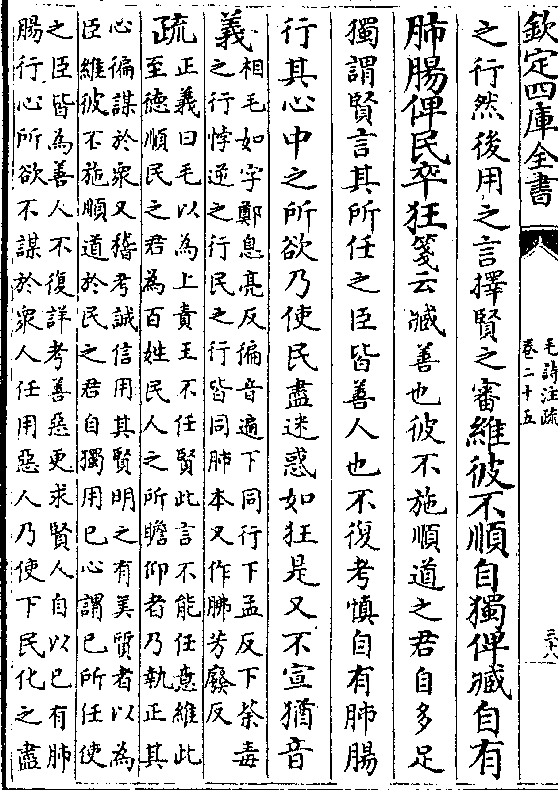 欽定四庫全書
毛詩注疏
卷二十五
三十八
之行然後用之言擇賢之審維彼不順自獨俾臧自有
肺腸俾民卒狂箋云臧善也彼不施順道之君自多足
獨謂賢言其所任之臣皆善人也不復考慎自有肺腸
行其心中之所欲乃使民盡迷惑如狂是又不宣猶音
義相毛如字鄭息亮反徧音遍下同行下孟反下荼毒
之行悖逆之行民之行皆同肺本又作胏芳廢反
疏正義曰毛以為上責王不任賢此言不能任意維此
至德順民之君為百姓民人之所瞻仰者乃執正其
心徧謀於衆又稽考誠信用其賢明之有美質者以為
臣維彼不施順道於民之君自獨用已心謂已所任使
之臣皆為善人不復詳考善惡更求賢人自以已有肺
腸行心所欲不謀於衆人任用惡人乃使下民化之盡